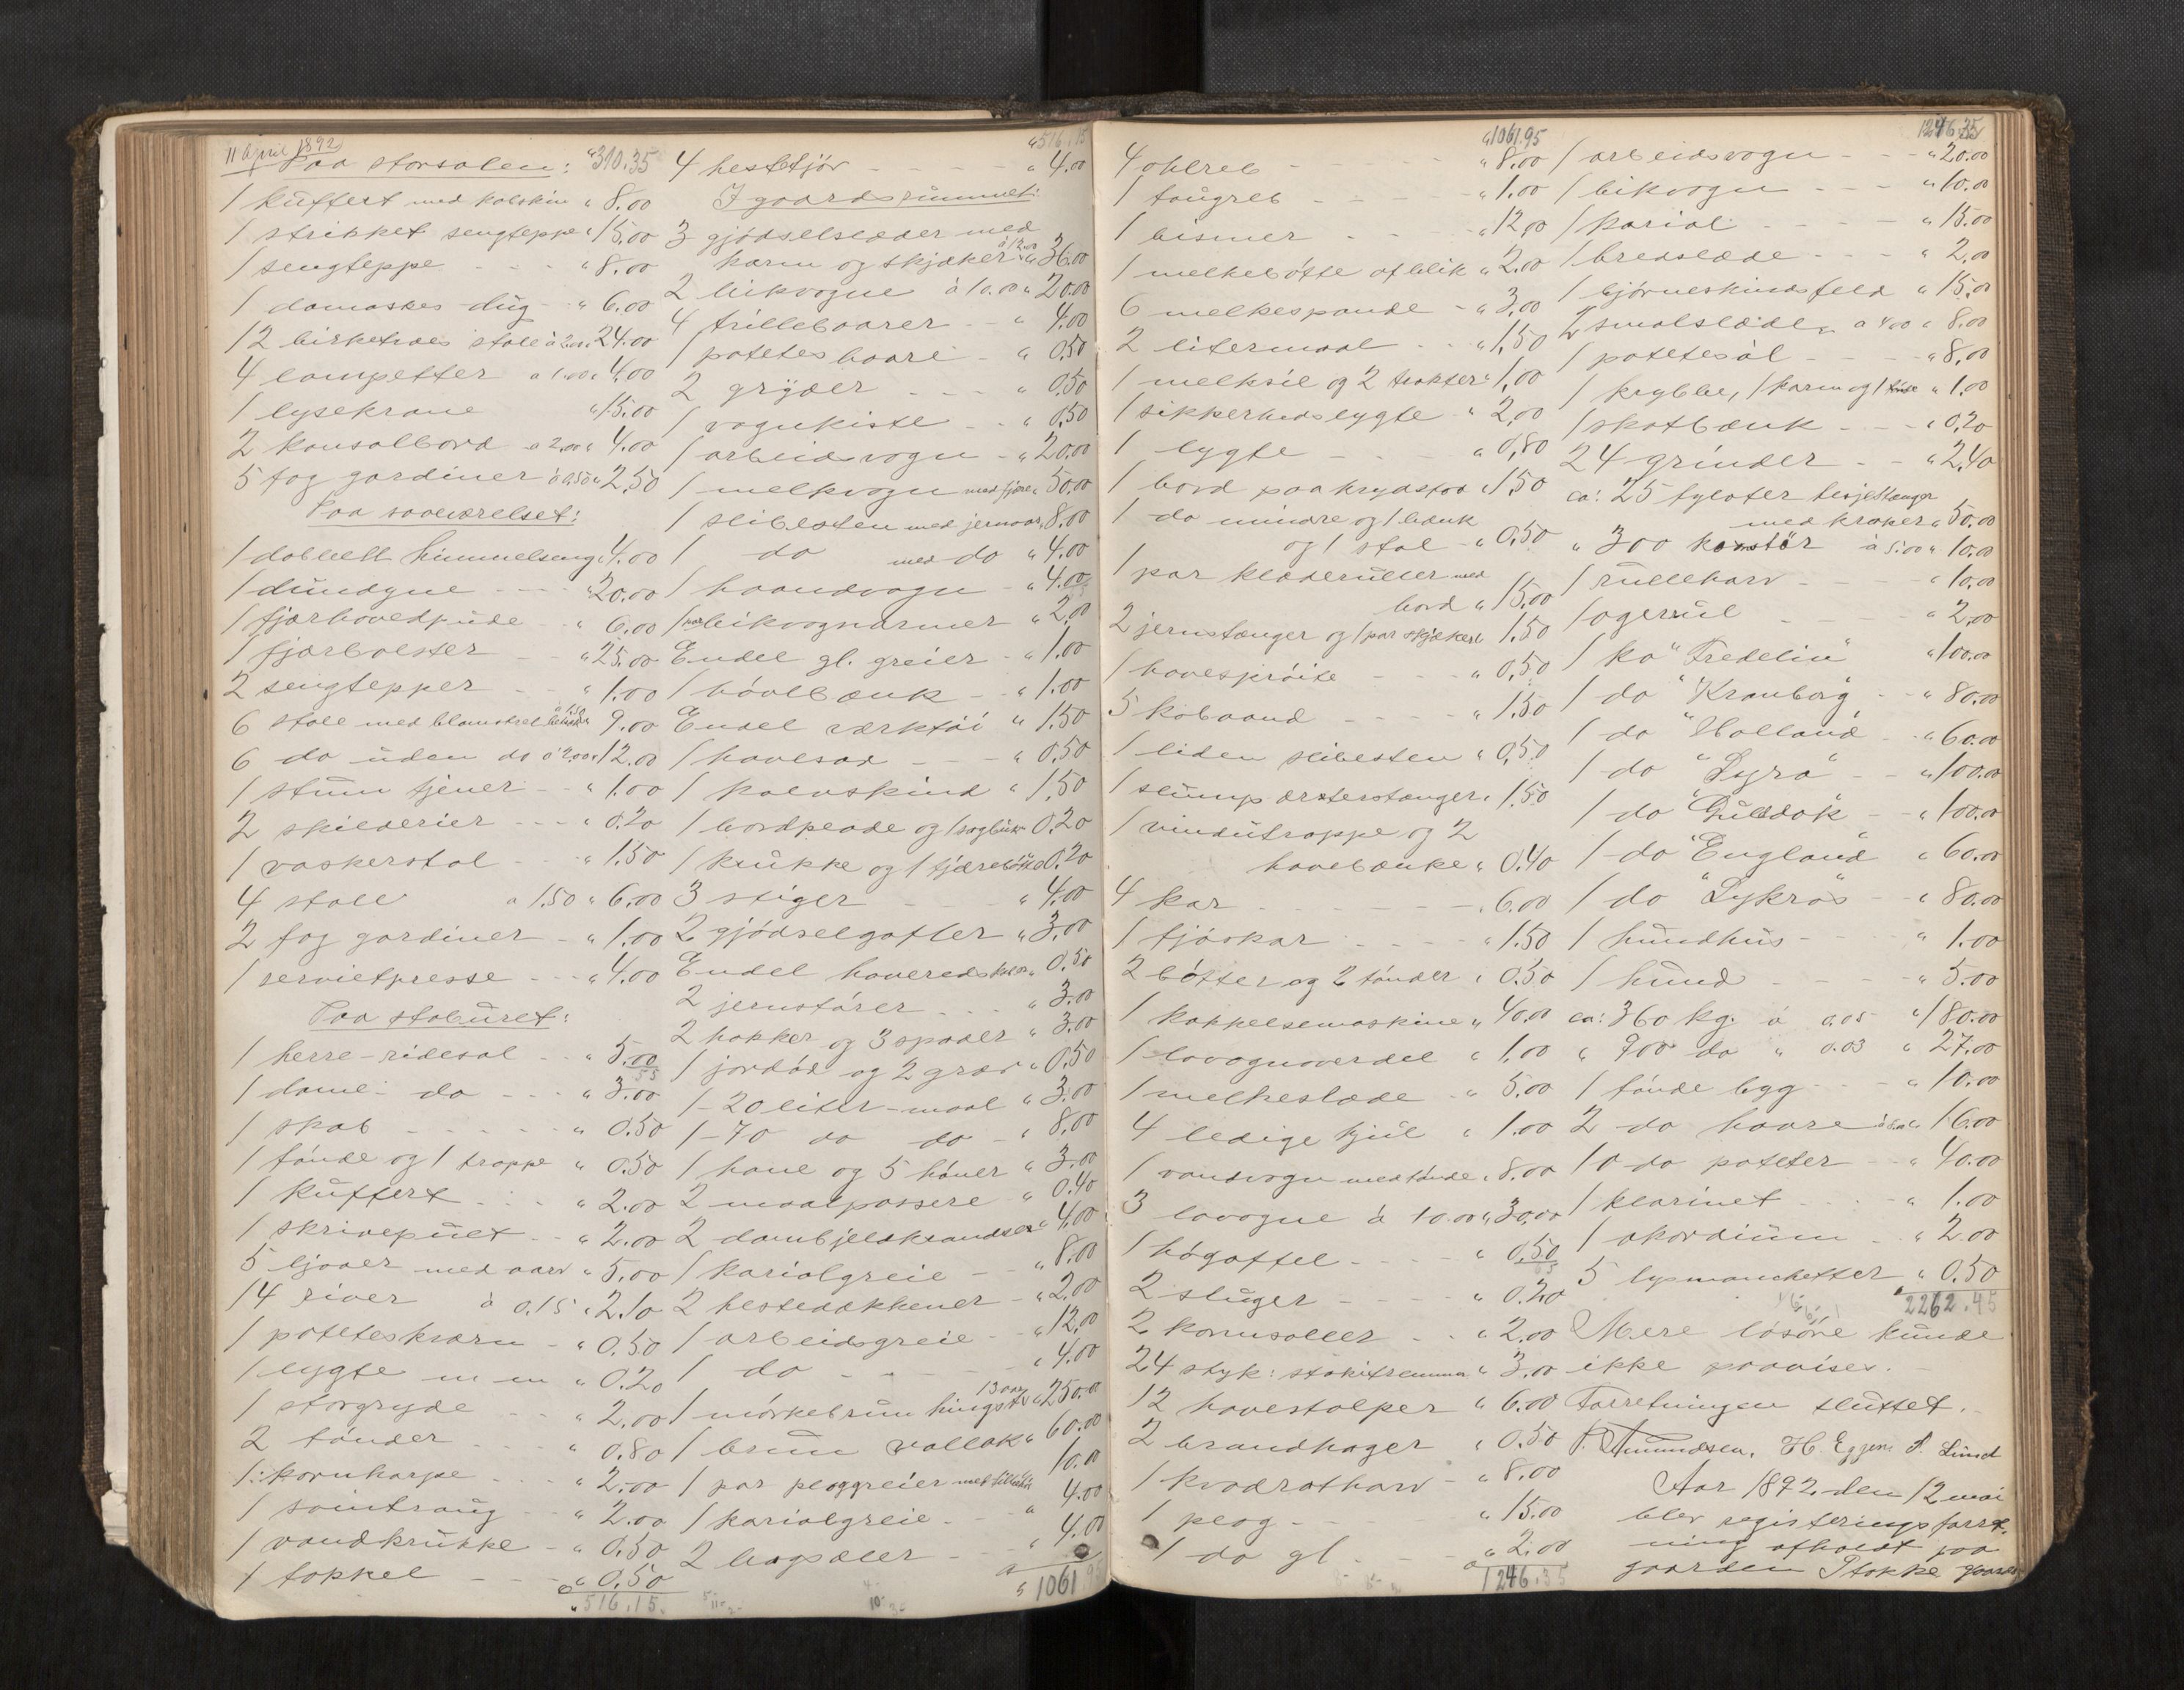 11 April 1892
Paa storsalen: " 310.35
1 kuffert med kobskin " 8.00
1 strikket sengteppe " 15.00
1 sengteppe - - - " 8.00
1 damaskes dug - " 6.00
12 birketræs stole à 2.00 " 24.00
4 lampetter à 1.00 " 4.00
1 lysekrone " 15.00
2 konsolbord à 2.00 " 4.00
5 fag gardiner à 0.50 " 2.50
Paa soveværelset:
1 dobbelt himmelseng " 4.00
1 dundyne - - - " 20.00
1 fjærhovedpude " 6.00
1 fjærbolster - " 25.00
2 sengtepper - - " 1.00
6 stole med blomstret betræk à 1.50 " 9.00
6 do uden do à 2.00 " 12.00
1 stum tjener - - " 1.00
2 skilderier - - - " 0.20
1 vaskerstol - - " 1.50
4 stole à 1.50 " 6.00
2 fag gardiner - " 1.00
1 servietpresse - - - " 4.00
Paa staburet:
1 herre-ridesal - - " 5.00
1 dame- do - - - " 3.00
1 skab - - - - - " 0.50
1 tönde og 1 trappe " 0.50
1 kuffert - - - " 2.00
1 skrivepult - - " 2.00
5 ljaaer med aarv " 5.00
14 river à 0.15 " 2.10
1 poteteskværn - " 0.50
1 lygte m m " 0.20
1 storgryde - - " 2.00
2 tönder - - - " 0.80
1 kornharpe - - - " 2.00
1 svintraug - - " 2.00
1 vandkrukke - - " 0.50
1 toppel - - - " 0.50
" 516.15
" 516.15
4 hesttjör - - - - - " 4.00
I gaardsrummet:
3 gjödselslæder med
karm og skjæker à 12.00 " 36.00
2 bikvogne à 10.00 " 20.00
4 trillebaarer - - " 4.00
1 potetesbaare - " 0.50
2 gryder - - - " 0.50
1 vognkiste - - " 0.50
1 arbeidsvogn - " 20.00
1 melkvogn med fjære " 50.00
1 slibesten med jernaare " 8.00
1 do med do " 4.00
1 haandvogn - " 4.00
1 par bikvognarmer " 2.00
Endel gl. greier - " 1.00
1 hövlbænk - - " 1.00
Endel verktöi " 1.50
1 havesax - - - " 0.50
1 kalvskind " 1.50
1 bordplade og 1 sagbuk " 0.20
1 krukke og 1 tjærebötte " 0.20
3 stiger - - - " 4.00
2 gjödselgafler " 3.00
Endel haveredskaber " 0.50
2 jernstörer - - - " 3.00
2 hakker og 3 spader " 3.00
1 jordöd og 2 græv " 0.50
1 - 20 liter-maal " 3.00
1 - 70 do do - " 8.00
1 hane og 5 höner " 3.00
2 maalpassere " 0.40
2 dombjeldkrandser " 4.00
1 kariolgreie - " 8.00
2 hestedækkener - " 2.00
1 arbeidsgreie - " 12.00
1 do - - - " 4.00
1 mörkebrun hingst 13 aar " 250.00
1 brun vallak " 60.00
1 par ploggreier med tilbehör 10.00
1 kariolgreie - - " 4.00
2 bogsæler - - " 4.00
" 1061.95
" 1061.95
4 ohlreb - - - - - " 8.00
1 taugreb - - - - " 1.00
1 bismer - - - " 12.00
1 melkebötte af blik " 2.00
6 melkespande - " 3.00
2 litermaal - - " 1.50
1 melksil og 2 trakter " 1.00
1 sikkerhedslygte " 2.00
1 lygte - - - " 0.80
1 bord paa krydsfod " 1.50
1 do mindre og 1 bænk
og 1 stol - " 0.50
1 par klæderuller med
bord " 15.00
2 jernstænger og 1 par skjæker " 1.50
1 havesprøite - - - " 0.50
5 kobaand - - - - " 1.50
1 liden slibesten " 0.50
1 slump ærterstænger " 1.50
1 vindutrappe og 2
havebænke " 0.40
4 kar - - - - - " 6.00
1 fjöskar - - - " 1.50
2 bötter og 2 tönder " 0.50
1 kappelsemaskine " 40.00
1 lavognoverdel " 1.00
1 melkeslæde - " 5.00
4 ledige hjul " 1.00
1 vandvogn med tönde " 8.00
3 lavogne à 10.00 " 30.00
1 högaffel - - - " 0.50
2 sluger - - - " 0.20
2 kornsoller - - " 2.00
24 styk: stakitremmer " 3.00
12 havestolper " 6.00
2 brandhager " 0.50
1 kvadratharv - " 8.00
1 plog - - - - " 15.00
1 do gl. - - - " 2.00
1246.35
1246.35
1 arbeidsvogn - - - " 20.00
1 bikvogn - - - " 10.00
1 kariol - - - - " 15.00
1 bredslæde - - - " 2.00
1 björneskindsfeld " 15.00
2 smalslæder à 4.00 " 8.00
1 potetesöl - - - " 8.00
1 krybbe, 1 karm og 1 " 1.00
1 skatbænk - - - " 0.20
24 grinder - - " 2.40
ca: 25 tylvter hesjestænger
med kraker " 50.00
" 300 kornstör à 5.00 " 10.00
1 rulleharv - - - " 10.00
1 agerrul - - - " 2.00
1 ko "Fredelin" " 100.00
1 do "Kranborg" - - " 80.00
1 do "Holland - - " 60.00
1 do "Dyra" - - " 100.00
1 do "Guldok" - " 100.00
1 do "England" " 60.00
1 do "Lykros" - " 80.00
1 hundhus - - - " 1.00
1 hund - - - - " 5.00
ca: 360 kg. à 0.05 " 180.00
" 900 do " 0.03 " 27.00
1 tönde byg - - - " 10.00
2 do havre à 8.00 " 16.00
10 do poteter - - " 40.00
1 klarinet - - - " 1.00
1 akordium - - " 2.00
5 lysmanchetter " 0.50
2262.45
Mere lösöre kunde
ikke paavises.
Forretningen sluttet.
P. Amundsen. H. Eggen P. Lund
Aar 1892 den 12 mai
blev registeringsforret-
ning afholdt paa
gaarden Stokke